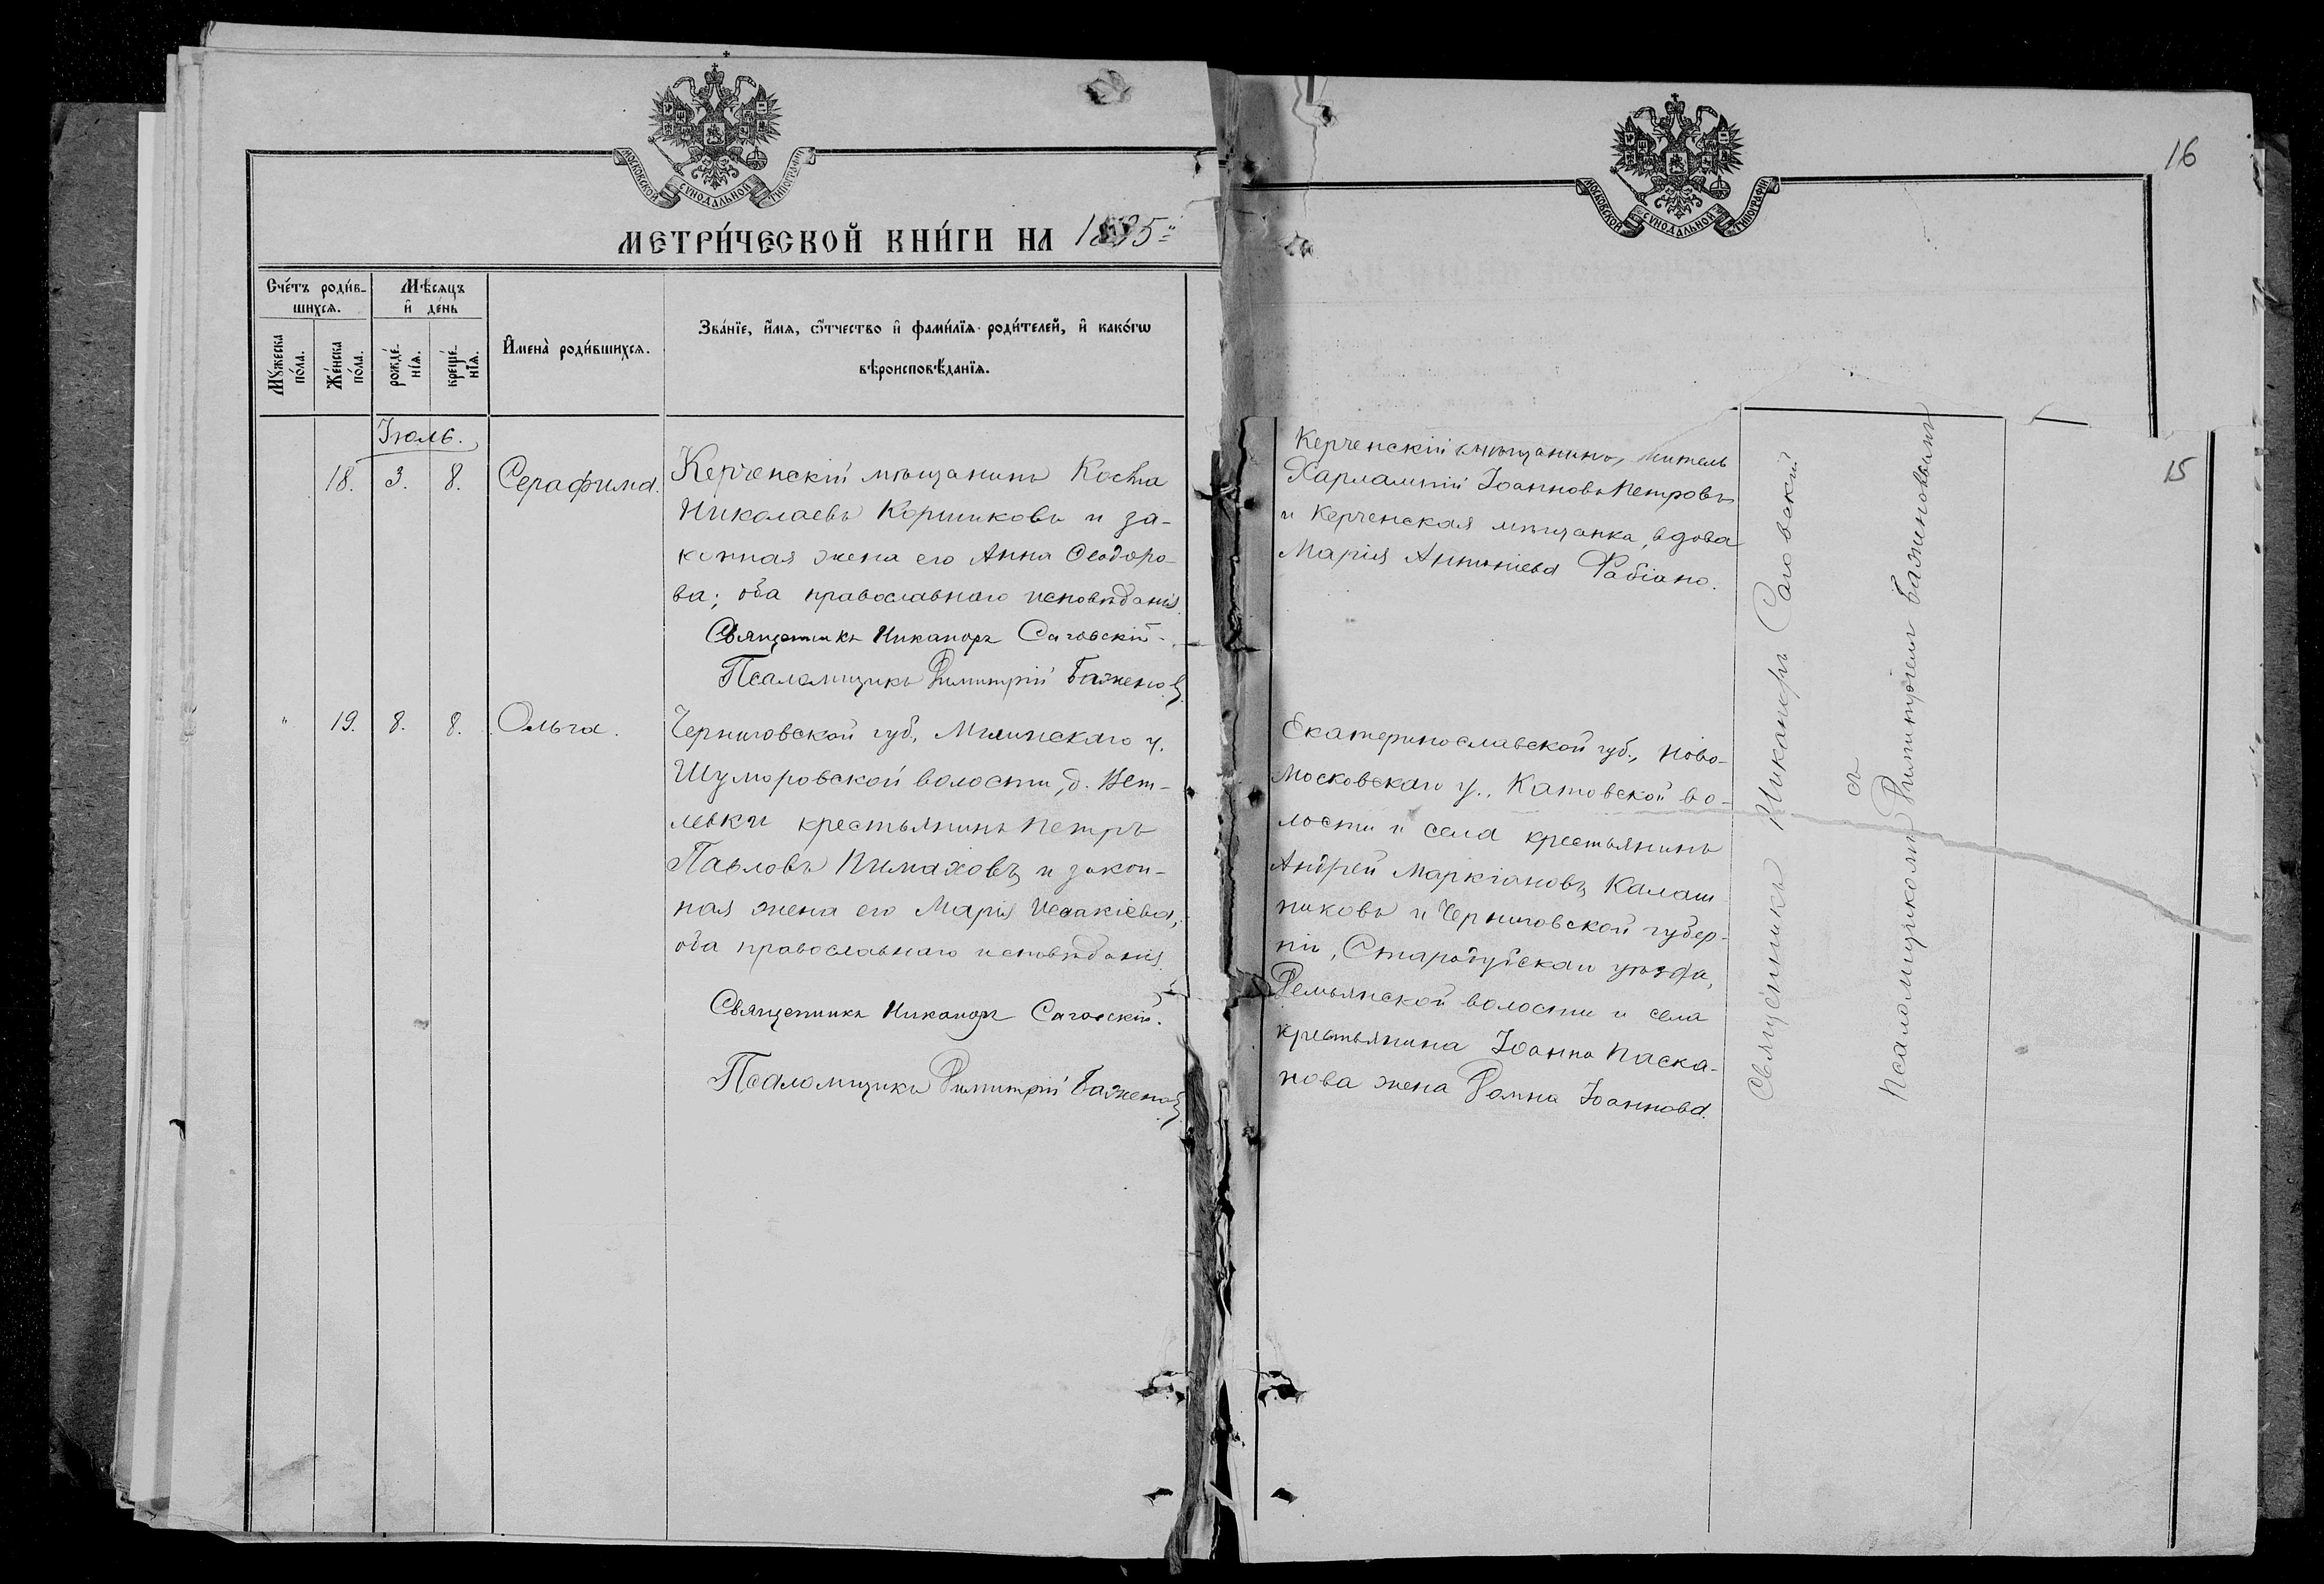 МОСКОВСКОЙ СѴНОДАЛЬНОЙ ТИПОГРАФІИ
МЕТРИ́ЧЕСКОЙ КНИ́ГИ НА 1895
Сче́тъ роди́в-
шихсѧ.
Мѣ́сѧцъ
и҆ де́нь
Мꙋ́жеска
по́ла.
Же́нска
по́ла.
рожде́-
нїѧ.
креще́-
нїѧ.
И҆мена̀ роди́вшихсѧ.
Зва́нїе, и҆́мѧ, ѻ҆́тчество и҆ фами́лїѧ роди́телей, и҆ како́гѡ
вѣроисповѣ́данїѧ.
Іюль.
18. 3. 8. Серафима.
Керченскій мѣщанинъ Косьма
Николаевъ Коршиковъ и за-
конная жена его Анна Ѳеодоро-
ва; оба православнаго исповѣданія.
Священникъ Никаноръ Саговскій.
Псаломщикъ Димитрій Баженовъ
" 19. 8. 8. Ольга.
Черниговской губ., Мглинскаго у.
Шуморовской волости, д. Вет-
левки крестьянинъ Петръ
Павловъ Пимаховъ и закон-
ная жена его Марія Исаакіева,
оба православнаго исповѣданія.
Священникъ Никаноръ Саговскій.
Псаломщикъ Димитрій Баженовъ
МОСКОВСКОЙ СѴНОДАЛЬНОЙ ТИПОГРАФІИ
16
15
Керченскій мѣщанинъ, житель
Харлампій Іоанновъ Петровъ
и Керченская мѣщанка, вдова
Марія Антоніева Фабіано.
Екатеринославской губ., Ново-
московскаго у., Катовской во-
лости и села крестьянинъ
Андрей Маркіановъ Калаш
никовъ и Черниговской губер-
ніи, Стародубскаго уѣзда,
Демьянской волости и села
крестьянина Іоанна Паска-
нова жена Домна Іоаннова.
Священникъ Никаноръ Саговскій
съ
псаломщикомъ Димитріемъ Баженовымъ